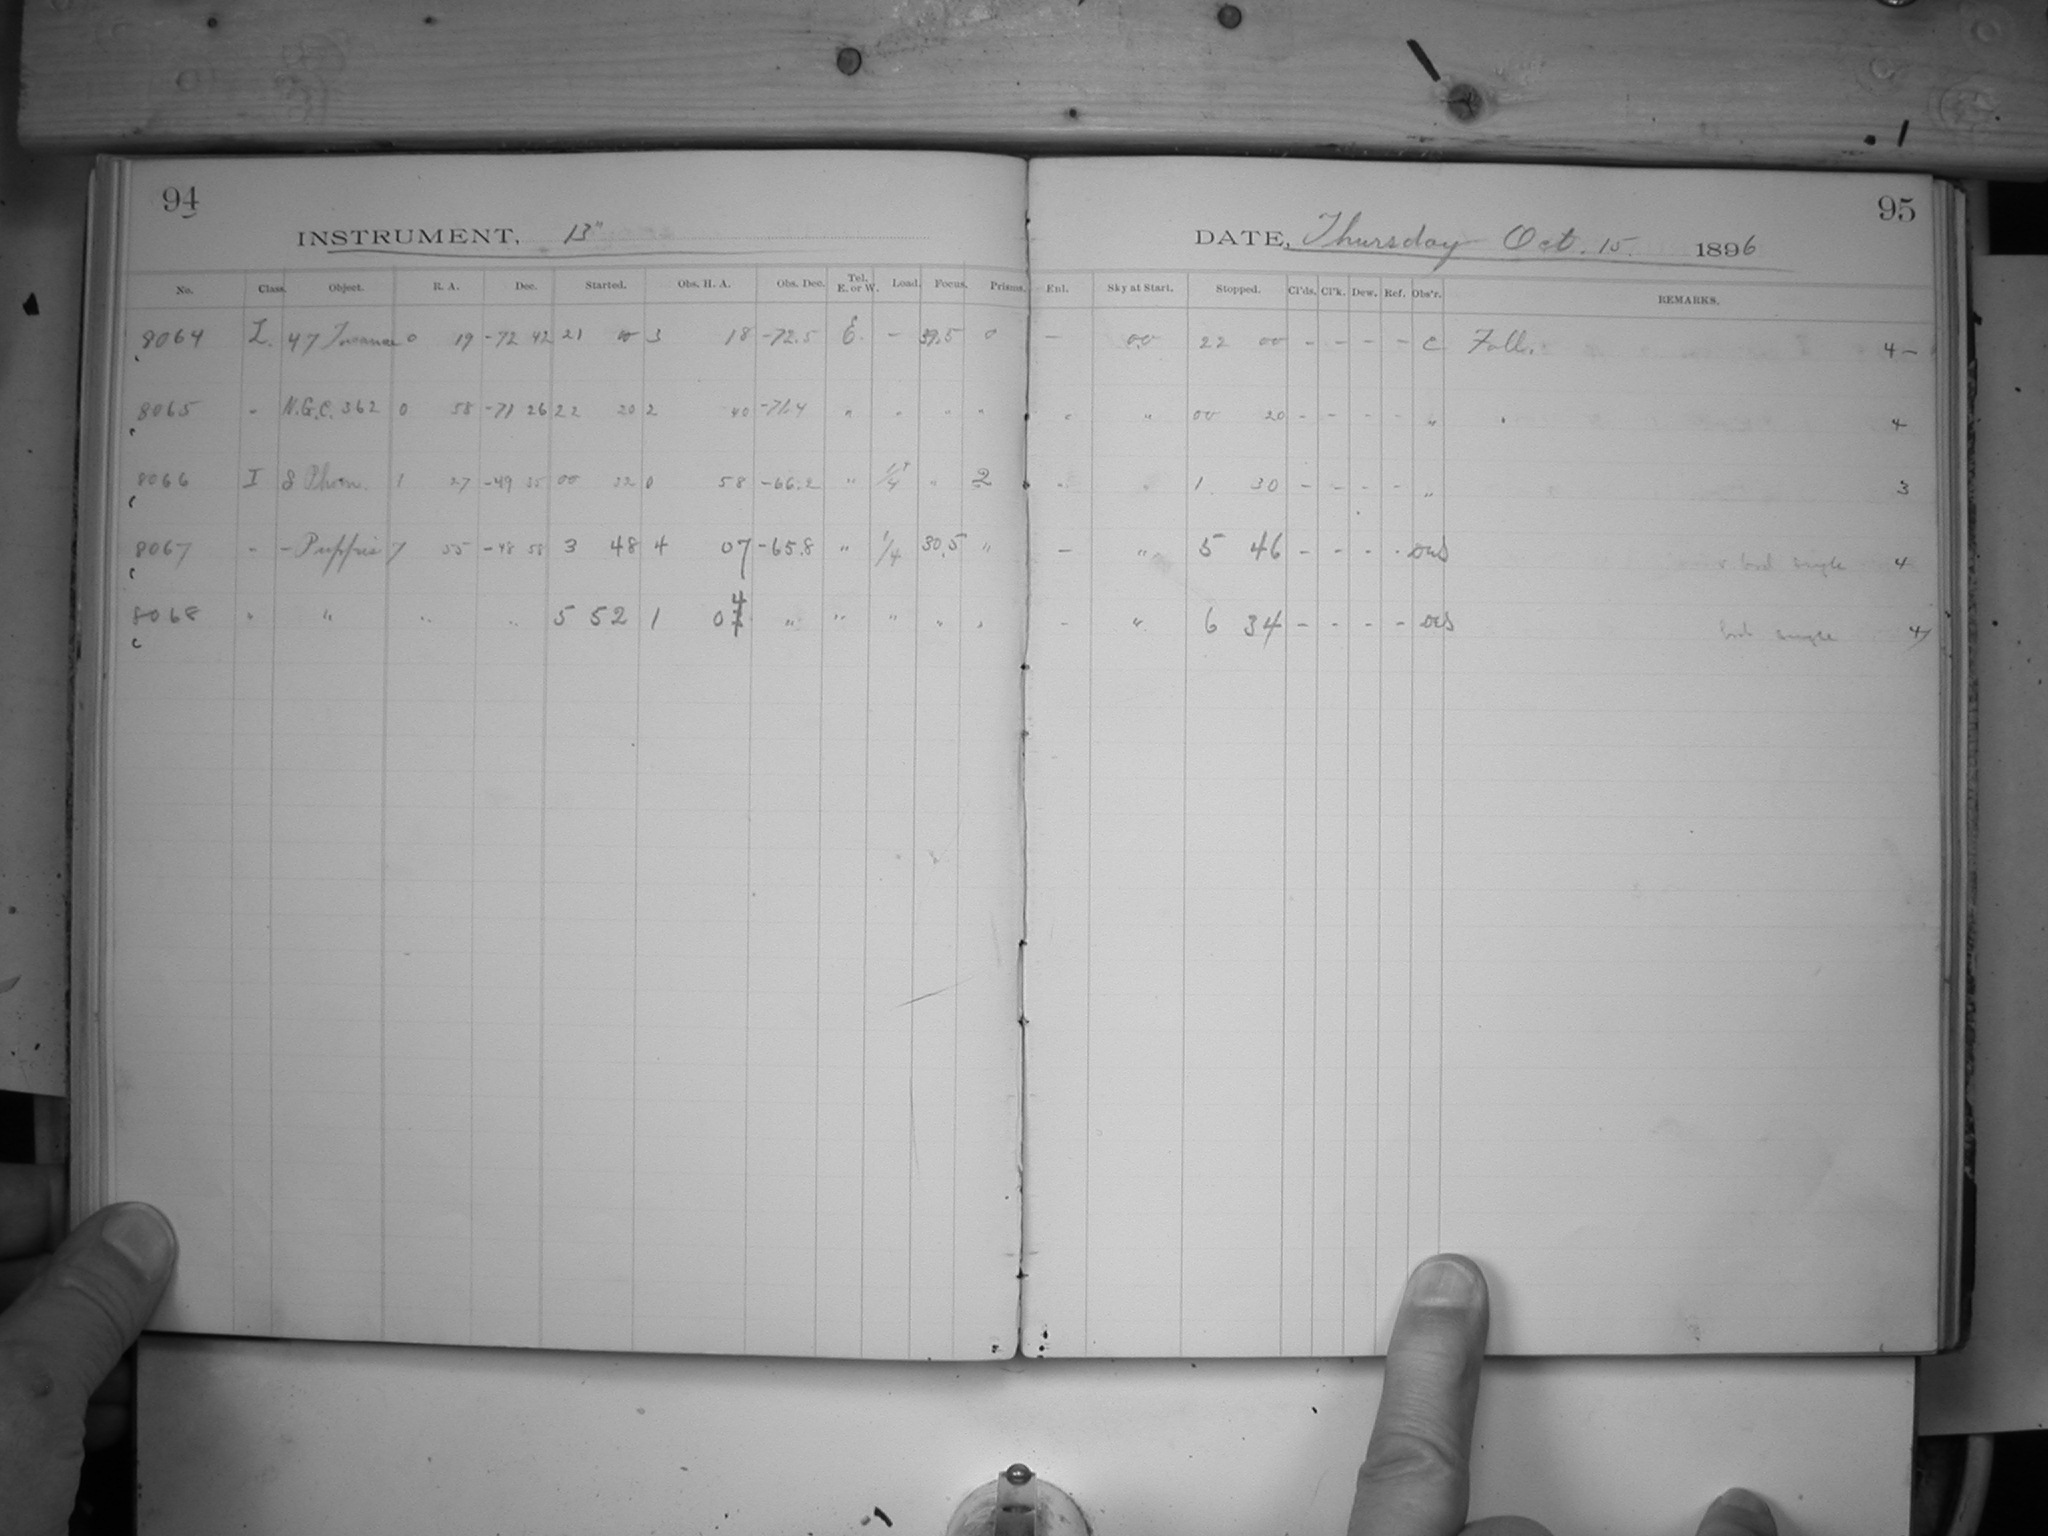 94
INSTRUMENT, 13"
No. Class. Object. R. A. Dec. Started. Obs. H. A. Obs. Dec. Tel. E. or W. Load. Focus. Prisms.
8064 L. 47 0 19 -72 42 21 00 3 18 -72.5 E. - 39.5 0
8065 " N.G.C. 362 0 58 -71 26 22 20 2 40 -71.4 " " " "
8066 I S Phoen. 1 27 -49 35 00 22 0 58 -66.2 " 1/4 " 2
8067 " - Puppis 7 55 -48 58 3 48 4 07 -65.8 " 1/4 30.5 "
8068 " " " " 5 52 1 04 " " " " "
95
DATE, Thursday Oct. 15. 1896
Enl. Sky at Start. Stopped. Cl'ds. Cl'k. Dew. Ref. Obs'r. REMARKS.
- 00 22 00 - - - - C Foll. 4 -
" " 00 20 - - - - " 4
" " 1 30 - - - - " 3
- " 5 46 - - - - bad angle 4
- " 6 34 - - - - bad angle 4